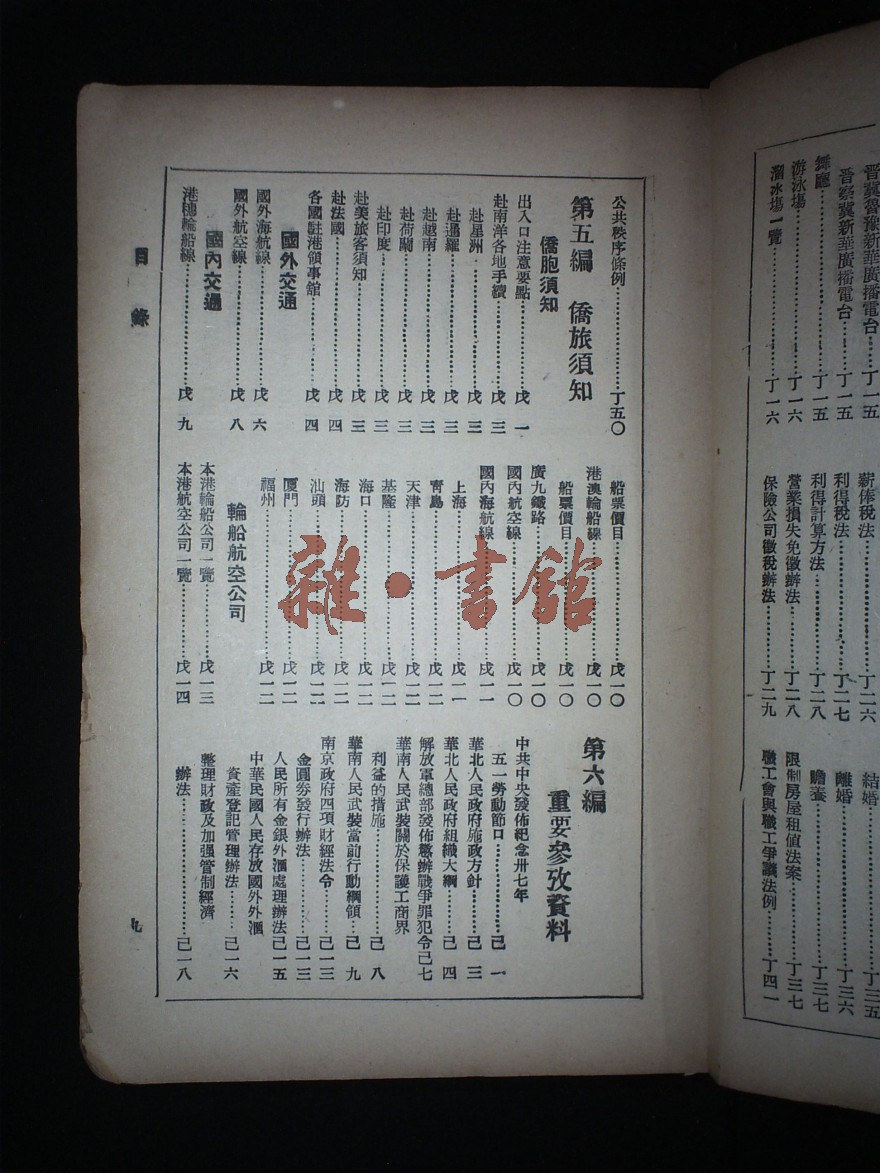 晉冀魯豫新華廣播電台……丁一五
晉察冀新華廣播電台……丁一五
舞廳……丁一五
游泳塲……丁一六
溜冰塲一覽……丁一六
薪俸稅法……丁二六
利得稅法……丁二七
利得計算方法……丁二八
營業損失免徵辦法……丁二八
保險公司徵稅辦法……丁二九
結婚……丁三五
離婚……丁三六
贍養……丁三七
限制房屋租值法案……丁三七
職工會與職工爭議法例……丁四一
公共秩序條例……丁五〇
第五編 僑旅須知
僑胞須知
出入口注意要點……戊一
赴南洋各地手續……戊三
赴星洲……戊三
赴暹羅……戊三
赴越南……戊三
赴荷屬……戊三
赴印度……戊三
赴美旅客須知……戊三
赴法國……戊四
各國駐港領事館……戊四
國外交通
國外海航線……戊六
國外航空線……戊八
國內交通
港穗輪船線……戊九
船票價目……戊一〇
港澳輪船線……戊一〇
船票價目……戊一〇
廣九鐵路……戊一〇
國內航空線……戊一〇
國內海航線……戊一一
上海……戊一一
靑島……戊一二
天津……戊一二
基隆……戊一二
海口……戊一二
海防……戊一二
汕頭……戊一二
厦門……戊一二
福州……戊一二
輪船航空公司
本港輪船公司一覽……戊一三
本港航空公司一覽……戊一四
第六編
重要參攷資料
中共中央發佈紀念卅七年
五一勞動節口……己一
華北人民政府施政方針……己三
華北人民政府組織大綱……己四
解放軍總部發佈懲辦戰爭罪犯令己七
華南人民武裝關於保護工商界
利益的措施……己八
華南人民武裝當前行動綱領……己九
南京政府四項財經法令……己一三
金圓券發行辦法……己一三
人民所有金銀外滙處理辦法己一五
中華民國人民存放國外外滙
資產登記管理辦法……己一六
整理財政及加强管制經濟
辦法……己一八
目錄
九
雜·書館